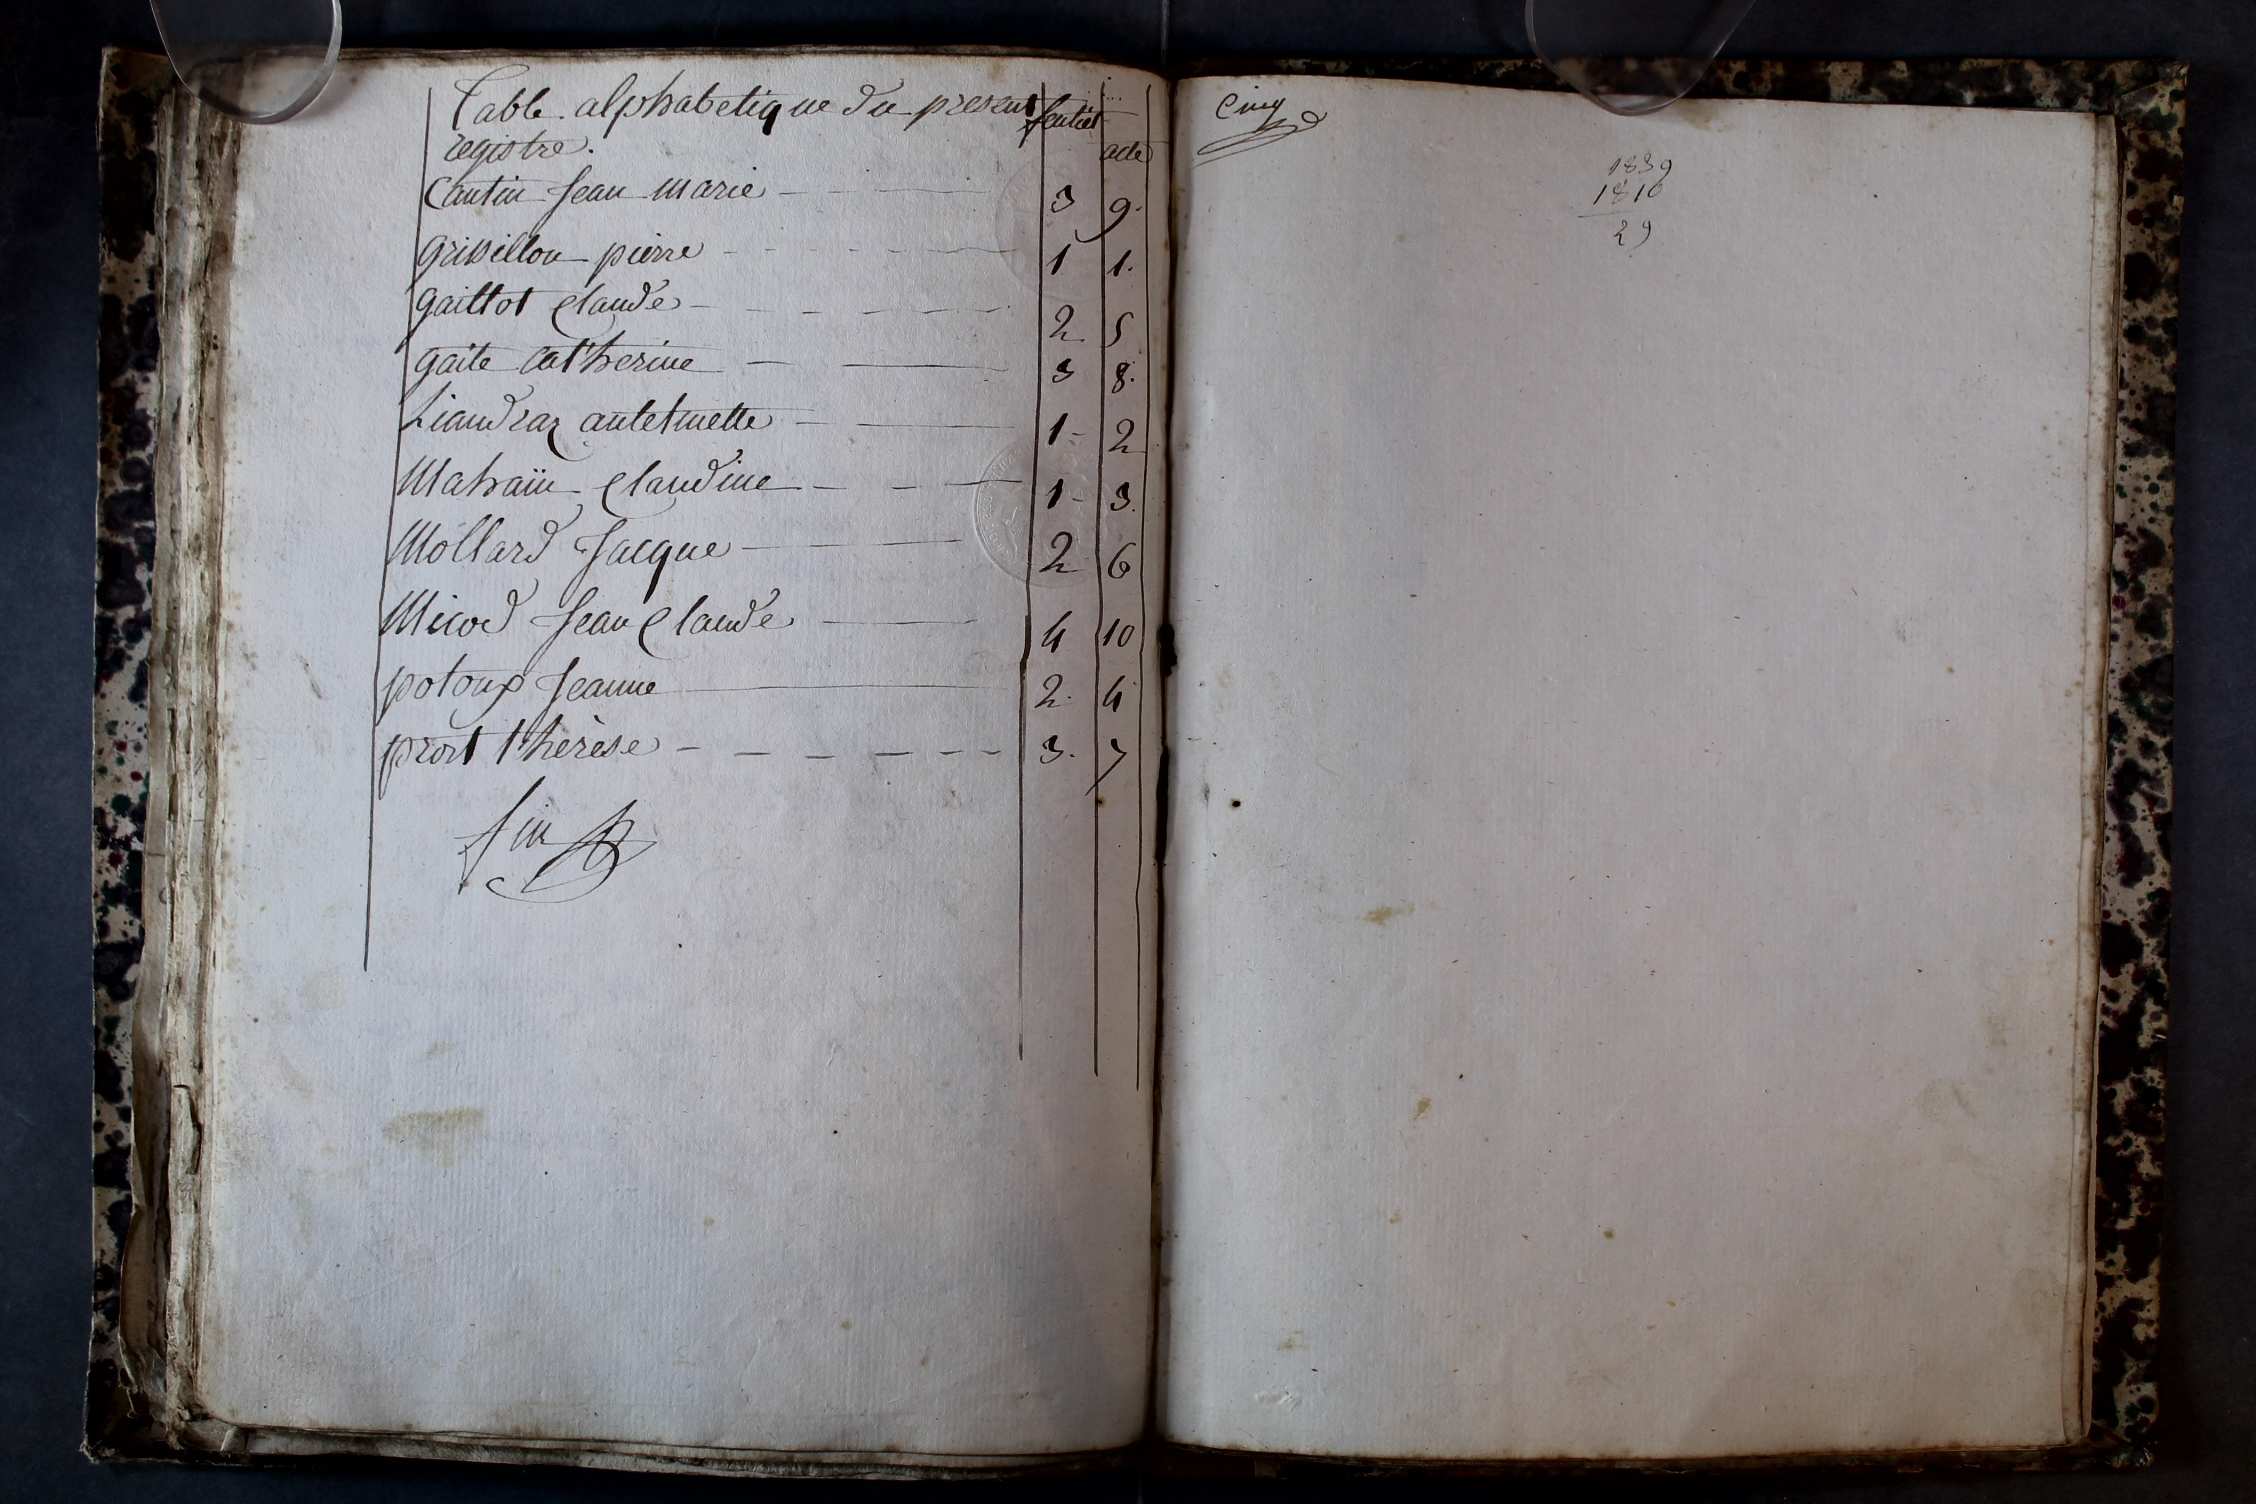 Table alphabetique du present feuillet acte
registre.
Cantin Jean marie 3 9.
Grisillon pierre 1 1.
gaillot Claude 2 5
gaite Catherine 3 8.
Liaudraz antelmette 1 2
Matraïn Claudine 1 3.
Mollard Jacque 2 6
Micod Jean Claude 4 10
potoux Jeanne 2. 4
prost thérèse 3. 7
fin
Cinq
1839
1810
29